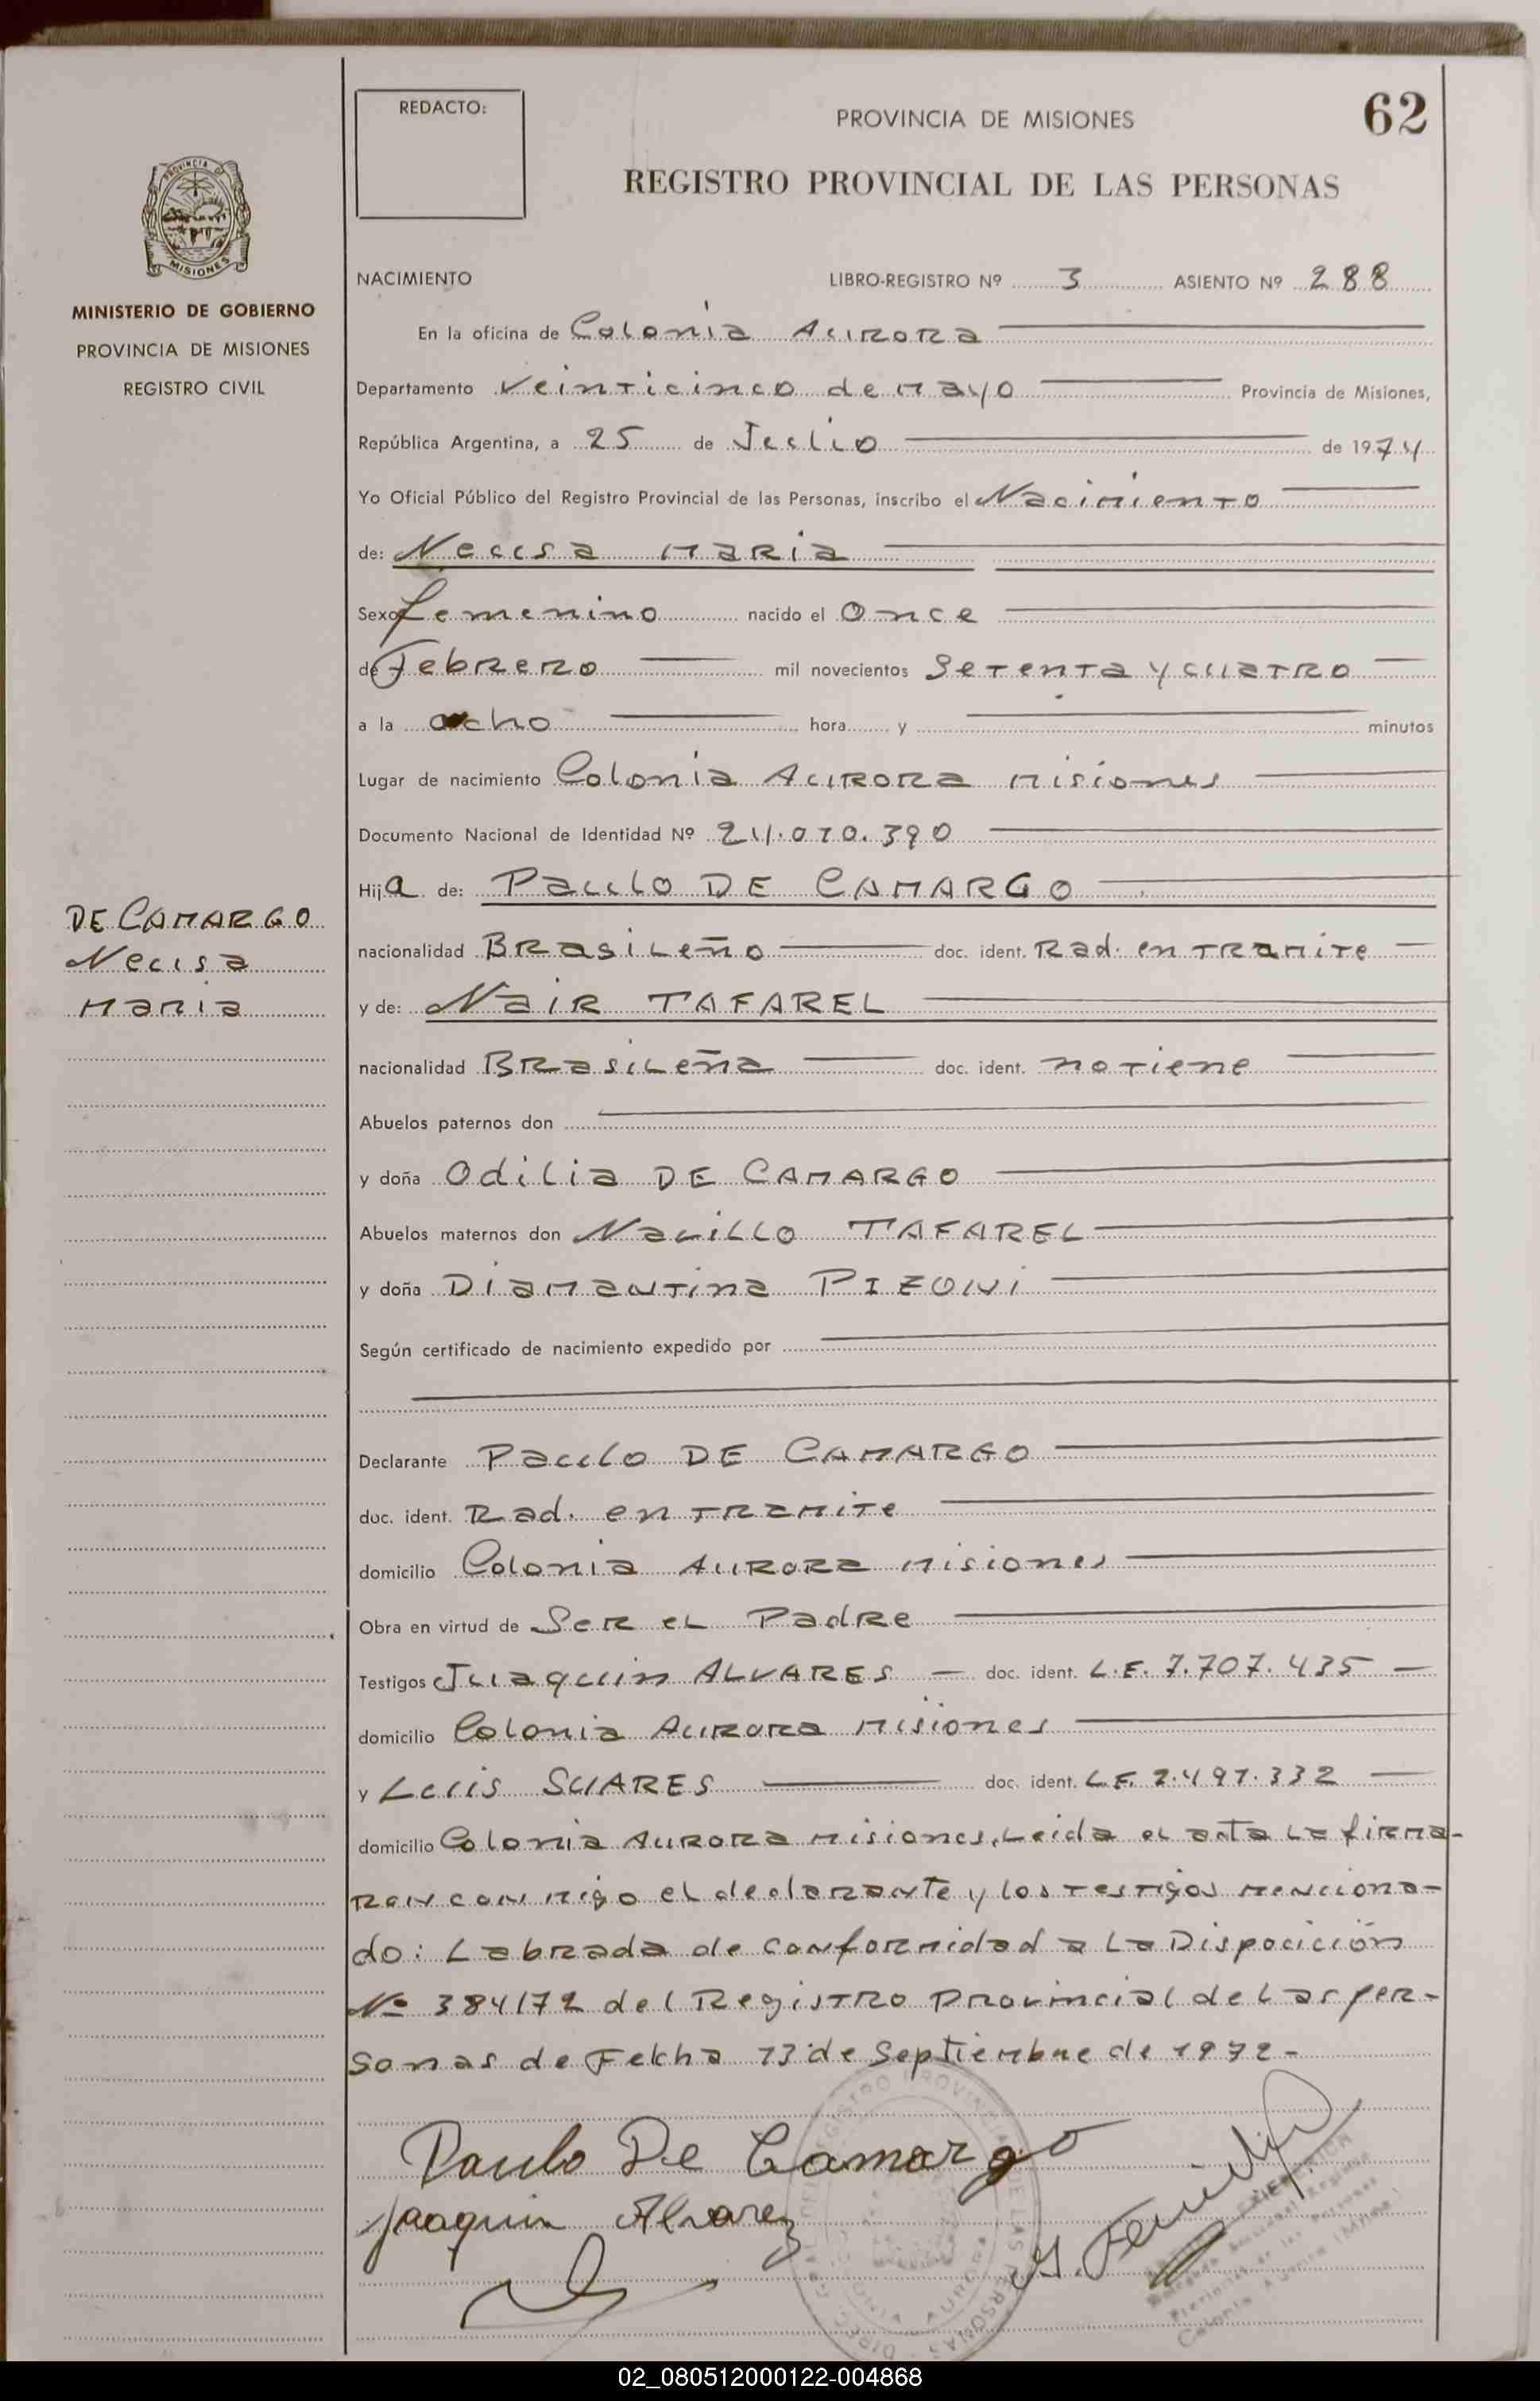 62
REDACTO:
PROVINCIA DE MISIONES
REGISTRO PROVINCIAL DE LAS PERSONAS
PROVINCIA
MISIONES
MINISTERIO DE GOBIERNO
PROVINCIA DE MISIONES
REGISTRO CIVIL
NACIMIENTO LIBRO-REGISTRO Nº 3 ASIENTO Nº 288
En la oficina de Colonia Aurora
Departamento Veinticinco de Mayo Provincia de Misiones,
República Argentina, a 25 de Julio de 1974
Yo Oficial Público del Registro Provincial de las Personas, inscribo el Nacimiento
de: Neusa Maria
Sexo femenino nacido el Once
de Febrero mil novecientos Setenta y cuatro
a la ocho hora y minutos
Lugar de nacimiento Colonia Aurora Misiones
Documento Nacional de Identidad Nº 24.010.390
Hija de: Paulo DE CAMARGO
DE CAMARGO
Neusa
Maria
nacionalidad Brasileño doc. ident. Rad. en tramite
y de: Nair TAFAREL
nacionalidad Brasileña doc. ident. no tiene
Abuelos paternos don
y doña Odilia DE CAMARGO
Abuelos maternos don TAFAREL
y doña Diamantina PIZONi
Según certificado de nacimiento expedido por
Declarante Paulo DE CAMARGO
doc. ident. Rad. en tramite
domicilio Colonia Aurora Misiones
Obra en virtud de Ser el Padre
Testigos Juaquin ALVARES doc. ident. L.E. 7.707.435
domicilio Colonia Aurora Misiones
y Luis SUARES doc. ident. L.E. 7.497.332
domicilio Colonia Aurora Misiones. Leida el acta la firma-
ran con migo el declarante y los testigos menciona-
do: Labrada de conformidad a la Disposición
Nº 384/72 del Registro Provincial de las per-
sonas de Fekha 13 de Septiembre de 1972-
Paulo De Camargo
Joaquin Alvarez
02_080512000122-004868